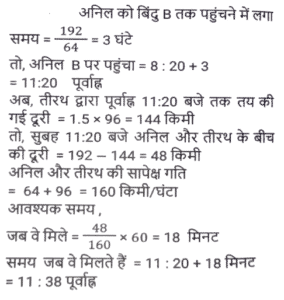 अनिल को बिंदु B तक पहुंचने में लगा
समय = 192/64 = 3 घंटे
तो, अनिल B पर पहुंचा = 8 : 20 + 3
= 11:20 पूर्वाह्न
अब, तीरथ द्वारा पूर्वाह्न 11:20 बजे तक तय की
गई दूरी = 1.5 × 96 = 144 किमी
तो, सुबह 11:20 बजे अनिल और तीरथ के बीच
की दूरी = 192 – 144 = 48 किमी
अनिल और तीरथ की सापेक्ष गति
= 64 + 96 = 160 किमी/घंटा
आवश्यक समय ,
जब वे मिले = 48/160 × 60 = 18 मिनट
समय जब वे मिलते हैं = 11 : 20 + 18 मिनट
= 11 : 38 पूर्वाह्न